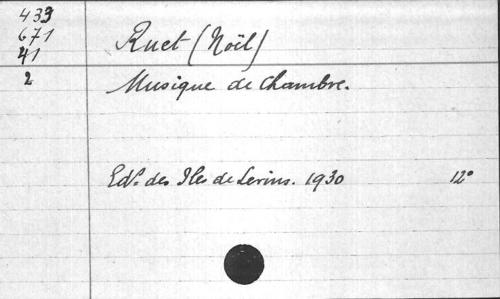 433
671
41
2
Ruet (Noël)
Musique de Chambre.
Edns des Iles de Lerins. 1930 12°